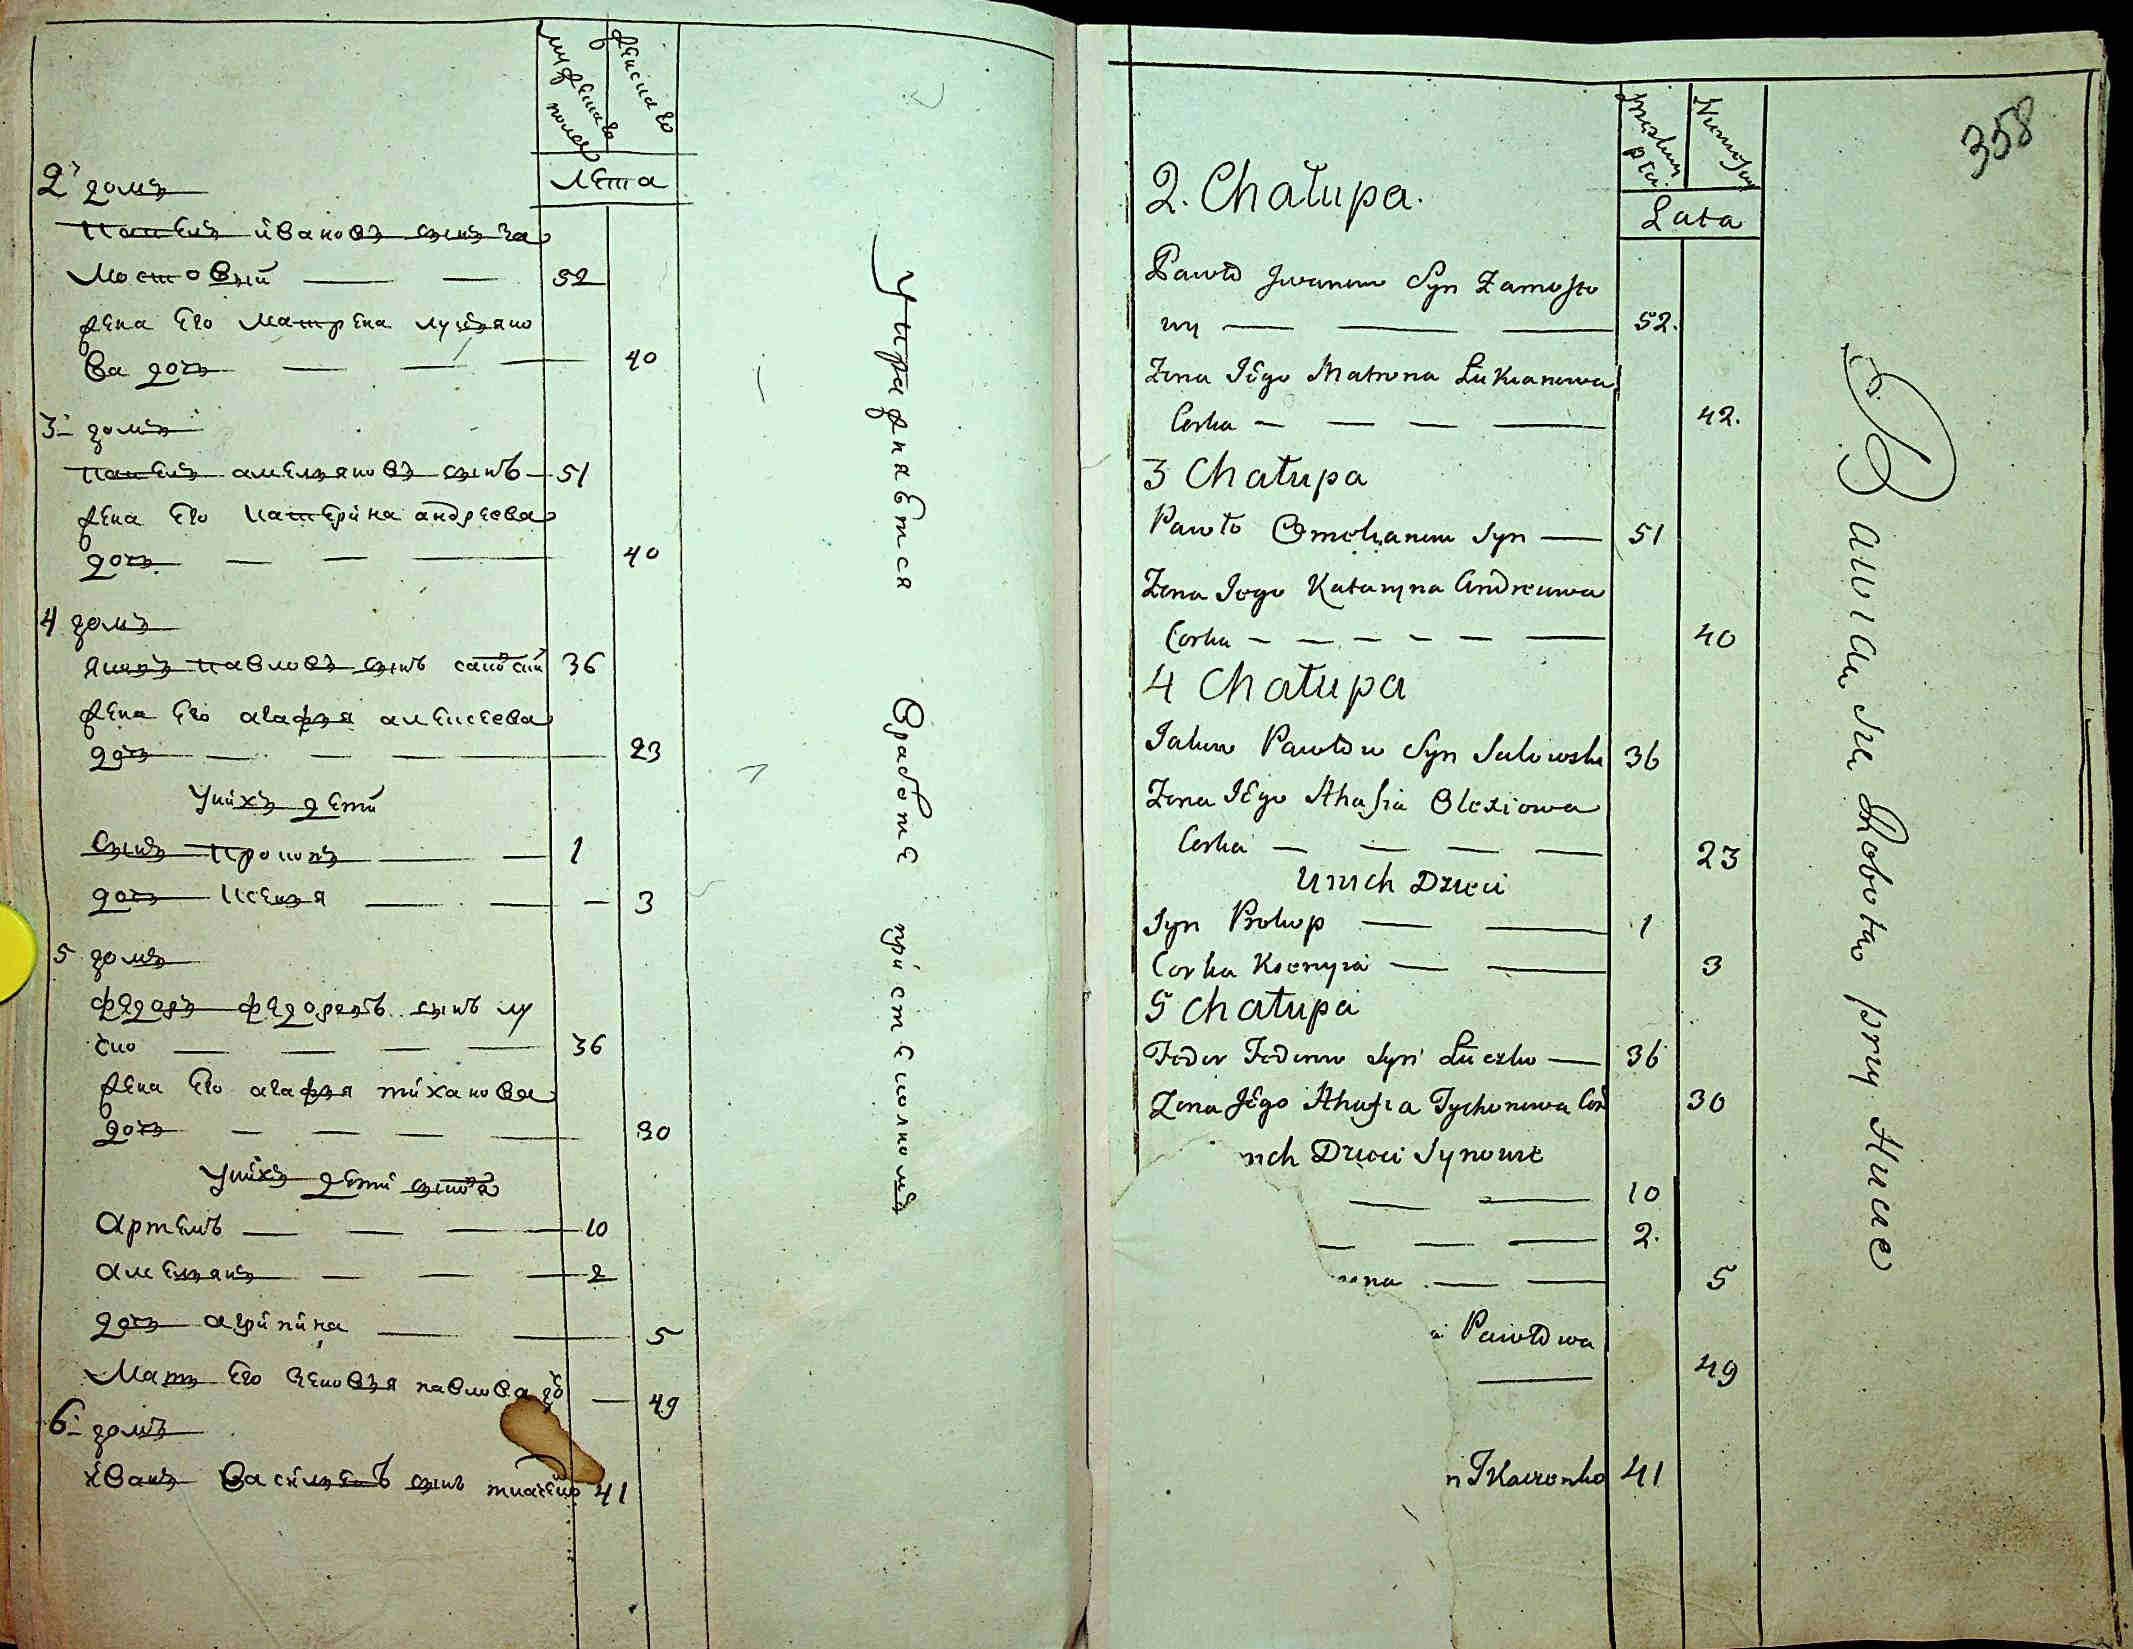 мужеска пола
женскаго
лета
2й домъ
павелъ ивановъ сынъ за
мостовый — — 52
жена его матрена лукяно
ва дочь — — — 40
3й домъ
павелъ амельяновъ сынъ — 51
жена его катерина андреева
дочь — — — 40
4 домъ
яковъ павловъ сынъ 36
жена его агафья алексеева
дочь — — — — 23
уних дети
сынъ прокопъ — — 1
дочь ксенья — — — 3
5 домъ
федоръ федоровъ сынъ лу
чко — — — — 36
жена его агафья тиханова
дочь — — — — 30
уних дети сыновя
артемъ — — — 10
амельянъ — — — 2
дочь агрипина — — 5
мать его зеновья павлова до — 49
6й домъ
иванъ васильевъ сынъ ткаченко 41
Упражняется Вработе при стекольномъ
358
Męzkiey płci
Lata
2. Chałupa.
Pawło Iwanow Syn Zamosto
wy — — — 52.
Zona Jego Matrona Łukianowa
Corka — — — — 42.
3 Chałupa
Pawło Omelianow Syn — 51
Zona Jego Kataryna Andreiowa
Corka — — — — — — 40
4 Chałupa
Jakow Pawłow Syn 36
Zona Jego Ahafia Olexiowa
Corka — — — — 23
Unich Dzieci
Syn Prokop — — 1
Corka Ksenyia — — 3
5 Chałupa
Fedor Fedorow Syn Łuczko — 36
Zona Jego Ahafia Tychonowa Cor 30
nich Dzieci Synowie
— — 10
— — — 2.
na — — 5
Pawłowa
— 49
n Tkaczenko 41
Bawiąn się Robotą przy Hucie